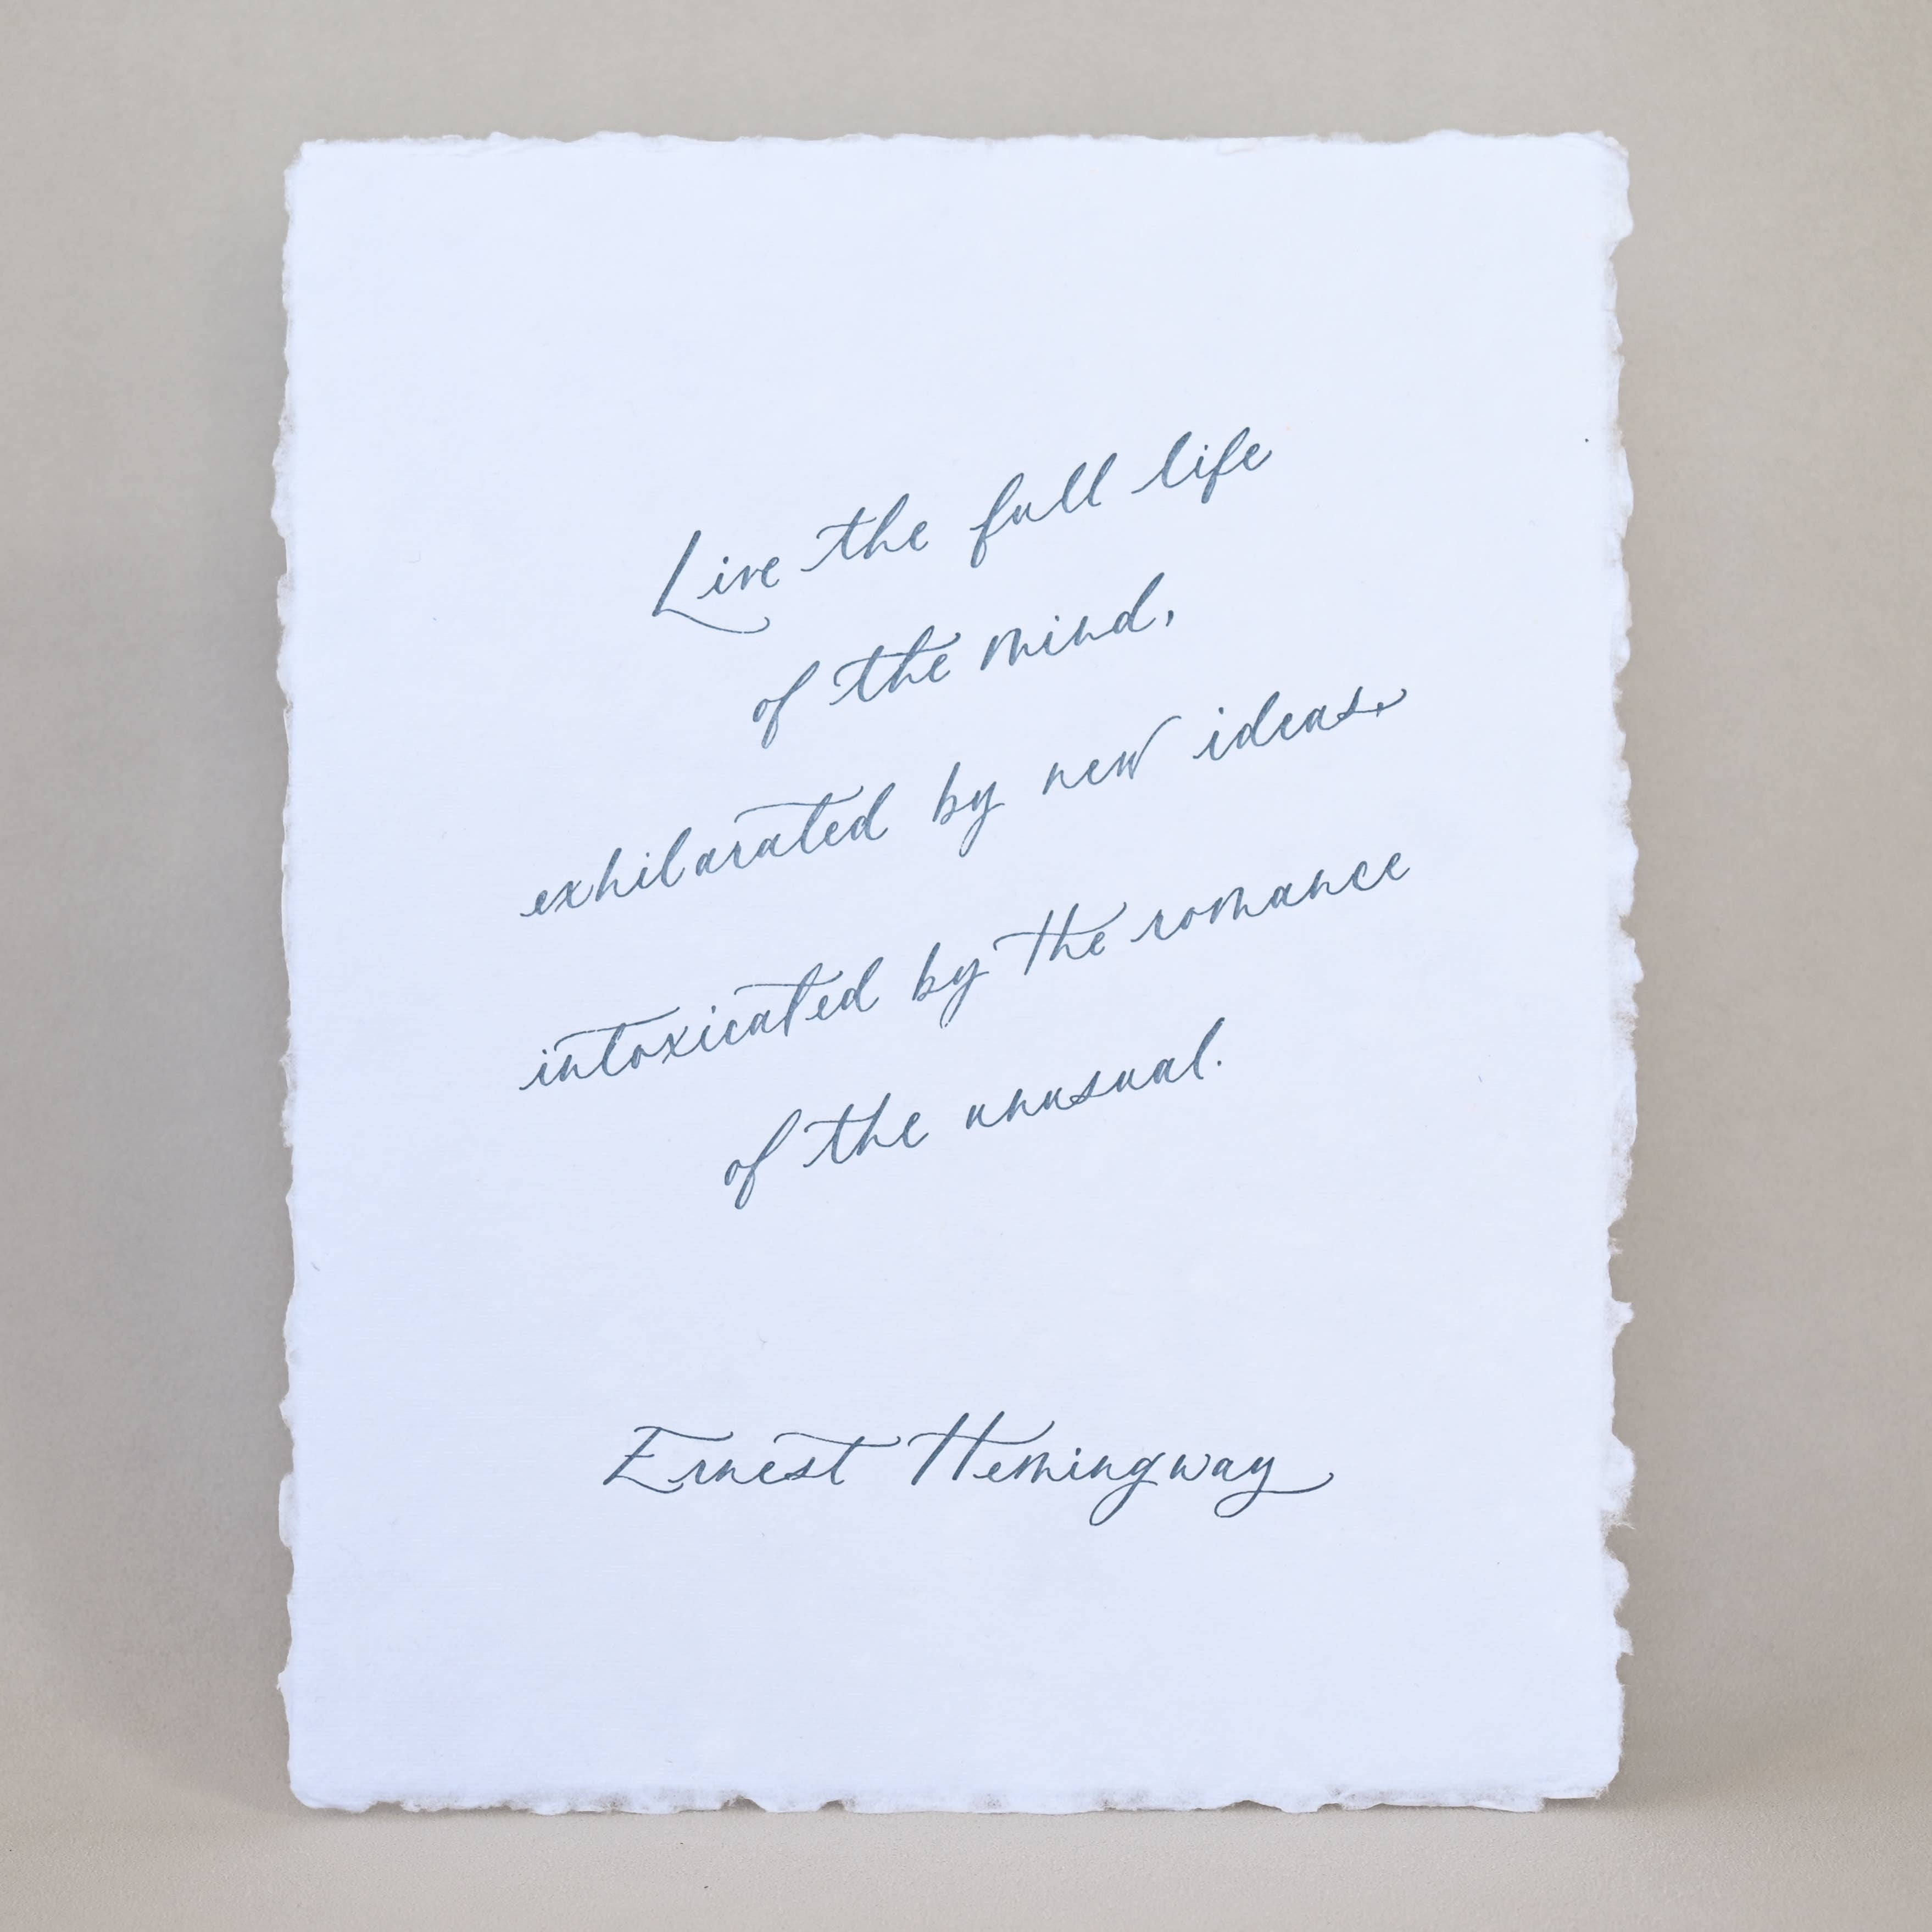 Live the full life
of the mind,
exhilarated by new ideas,
intoxicated by the romance
of the unusual.
Ernest Hemingway